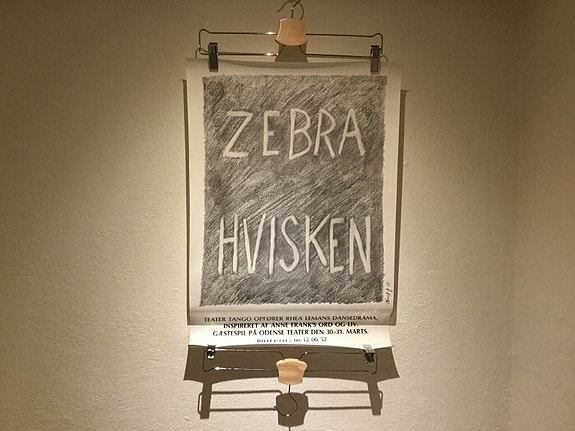 ZEBRA
HVISKEN
TEATER TANGO OPFØRER RHEA LEMANS DANSEDRAMA,
INSPIRERET AF ANNE FRANK'S ORD OG LIV.
GÆSTESPIL PÅ ODENSE TEATER DEN 30.-31. MARTS.
66 12 00 52